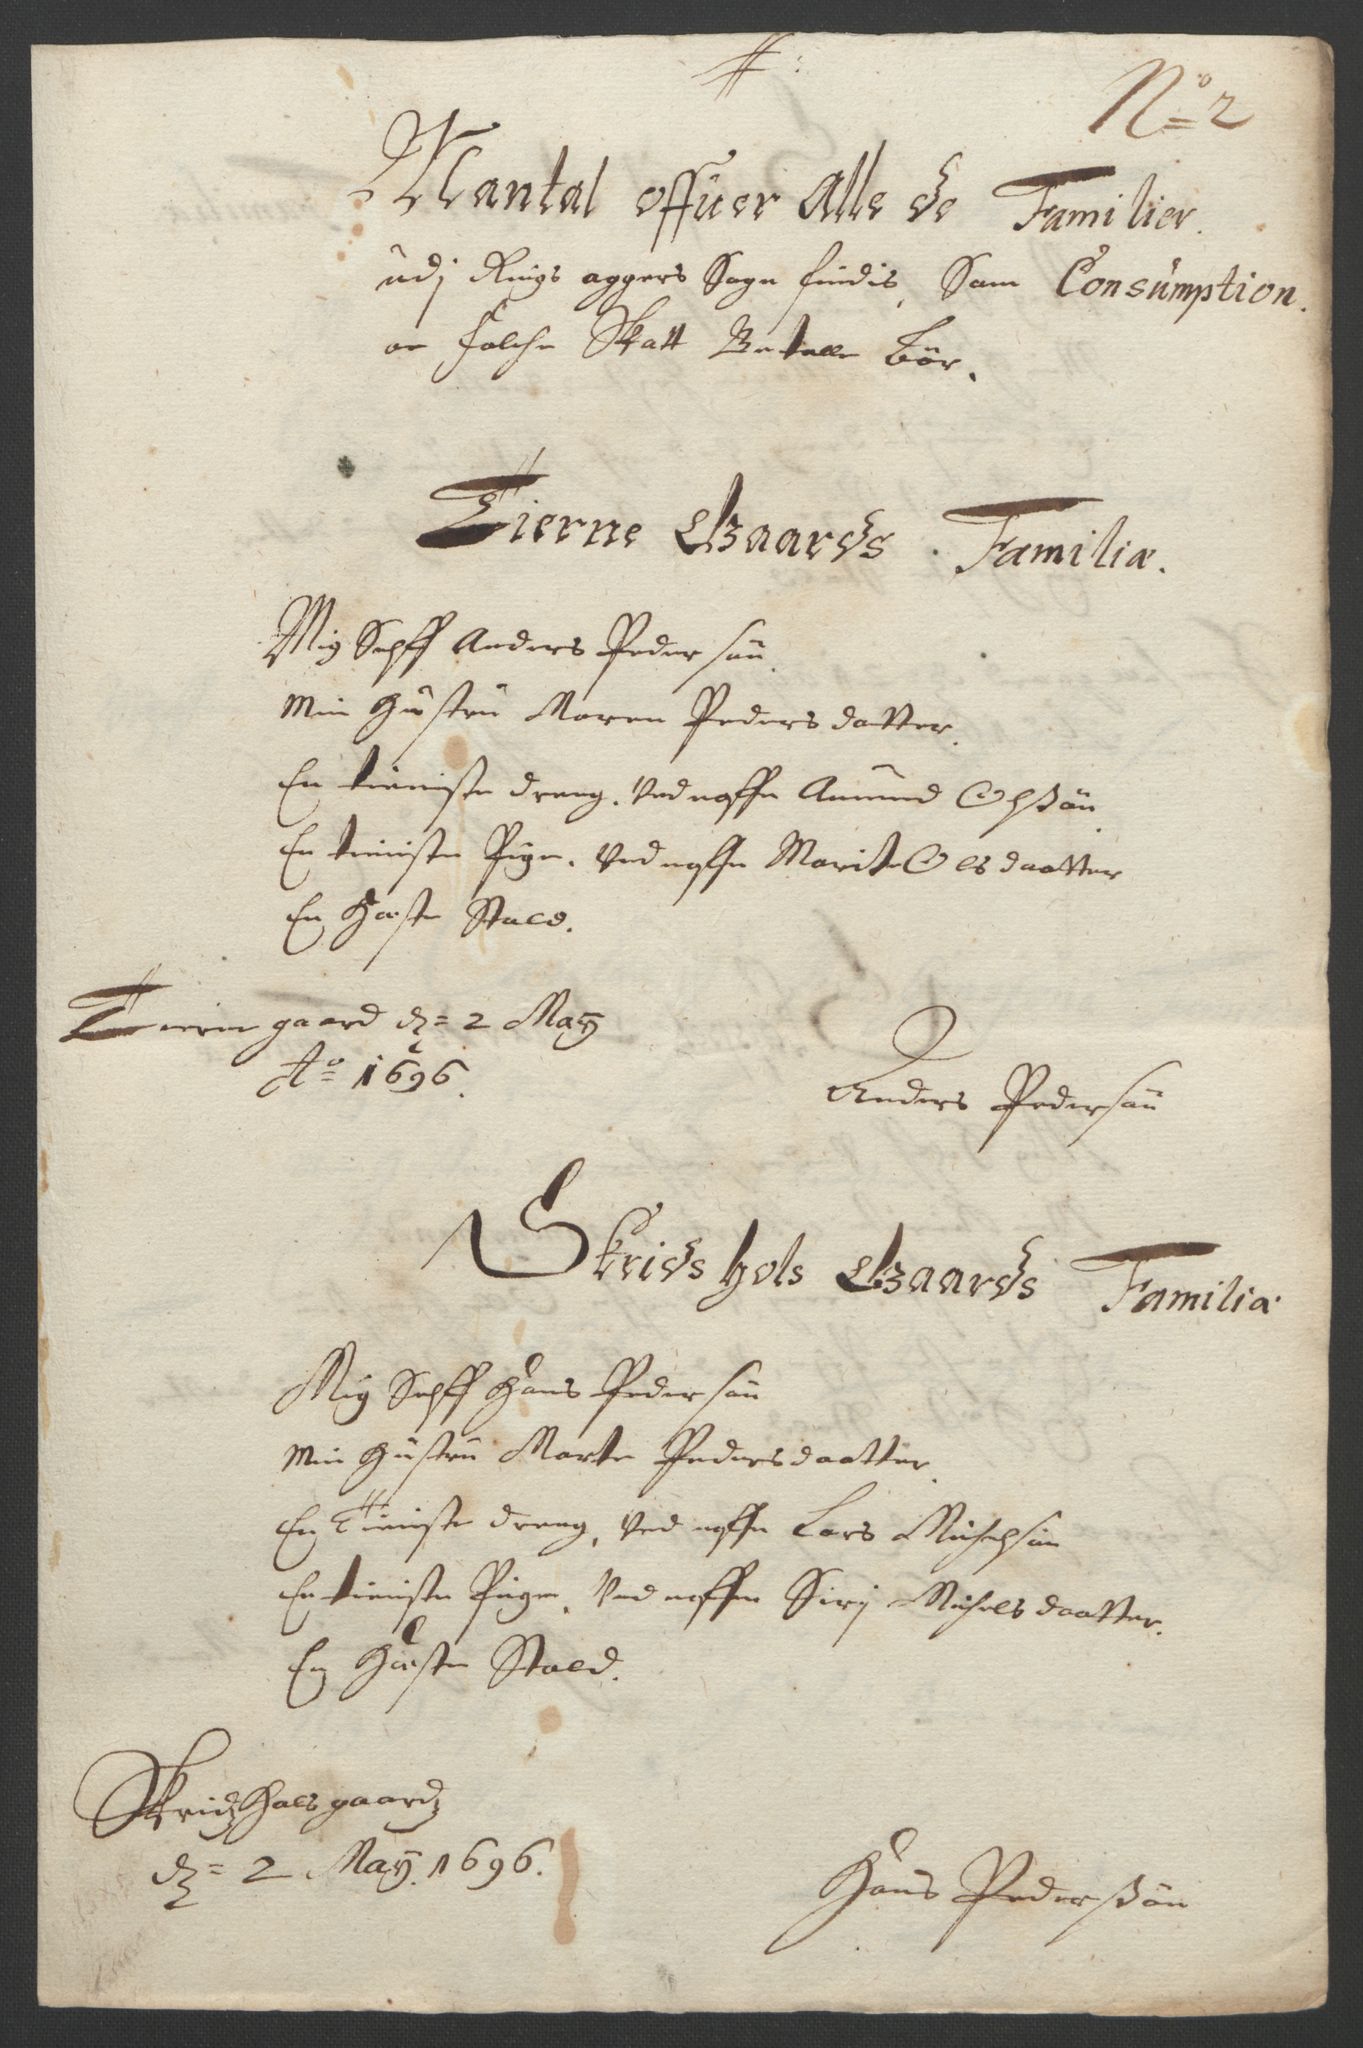 No 2
Mantal offuer Alle de Familier.
udj Rings aggers Sogn findis, Som Consumption.
oc Folche Skatt Betalle bör.
Tierne Gaards Familiæ.
Mig Selff Anders Pedersön
Min Hüstrü Maren Pedersdatter.
En tieniste dreng, Ved naffn Amund Olßön
En tieniste Pige, Ved naffn Marite Olsdaatter
En Hæste Stald.
Tierne gaard d= 2 Maÿ
Ao 1696.
Anders Pedersön
Skrids hols Gaards Familiæ
Mig Selff Hans Pedersön
Min Hüstrü Marte Pedersdaatter.
En Tieniste dreng, Ved naffn Lars Michelsön
En tieniste Pige, Ved naffn Sirj Michelsdaatter.
En Hæste Stald.
Skridz Hols gaard
d= 2 Maÿ. 1696.
Hans Pederßön